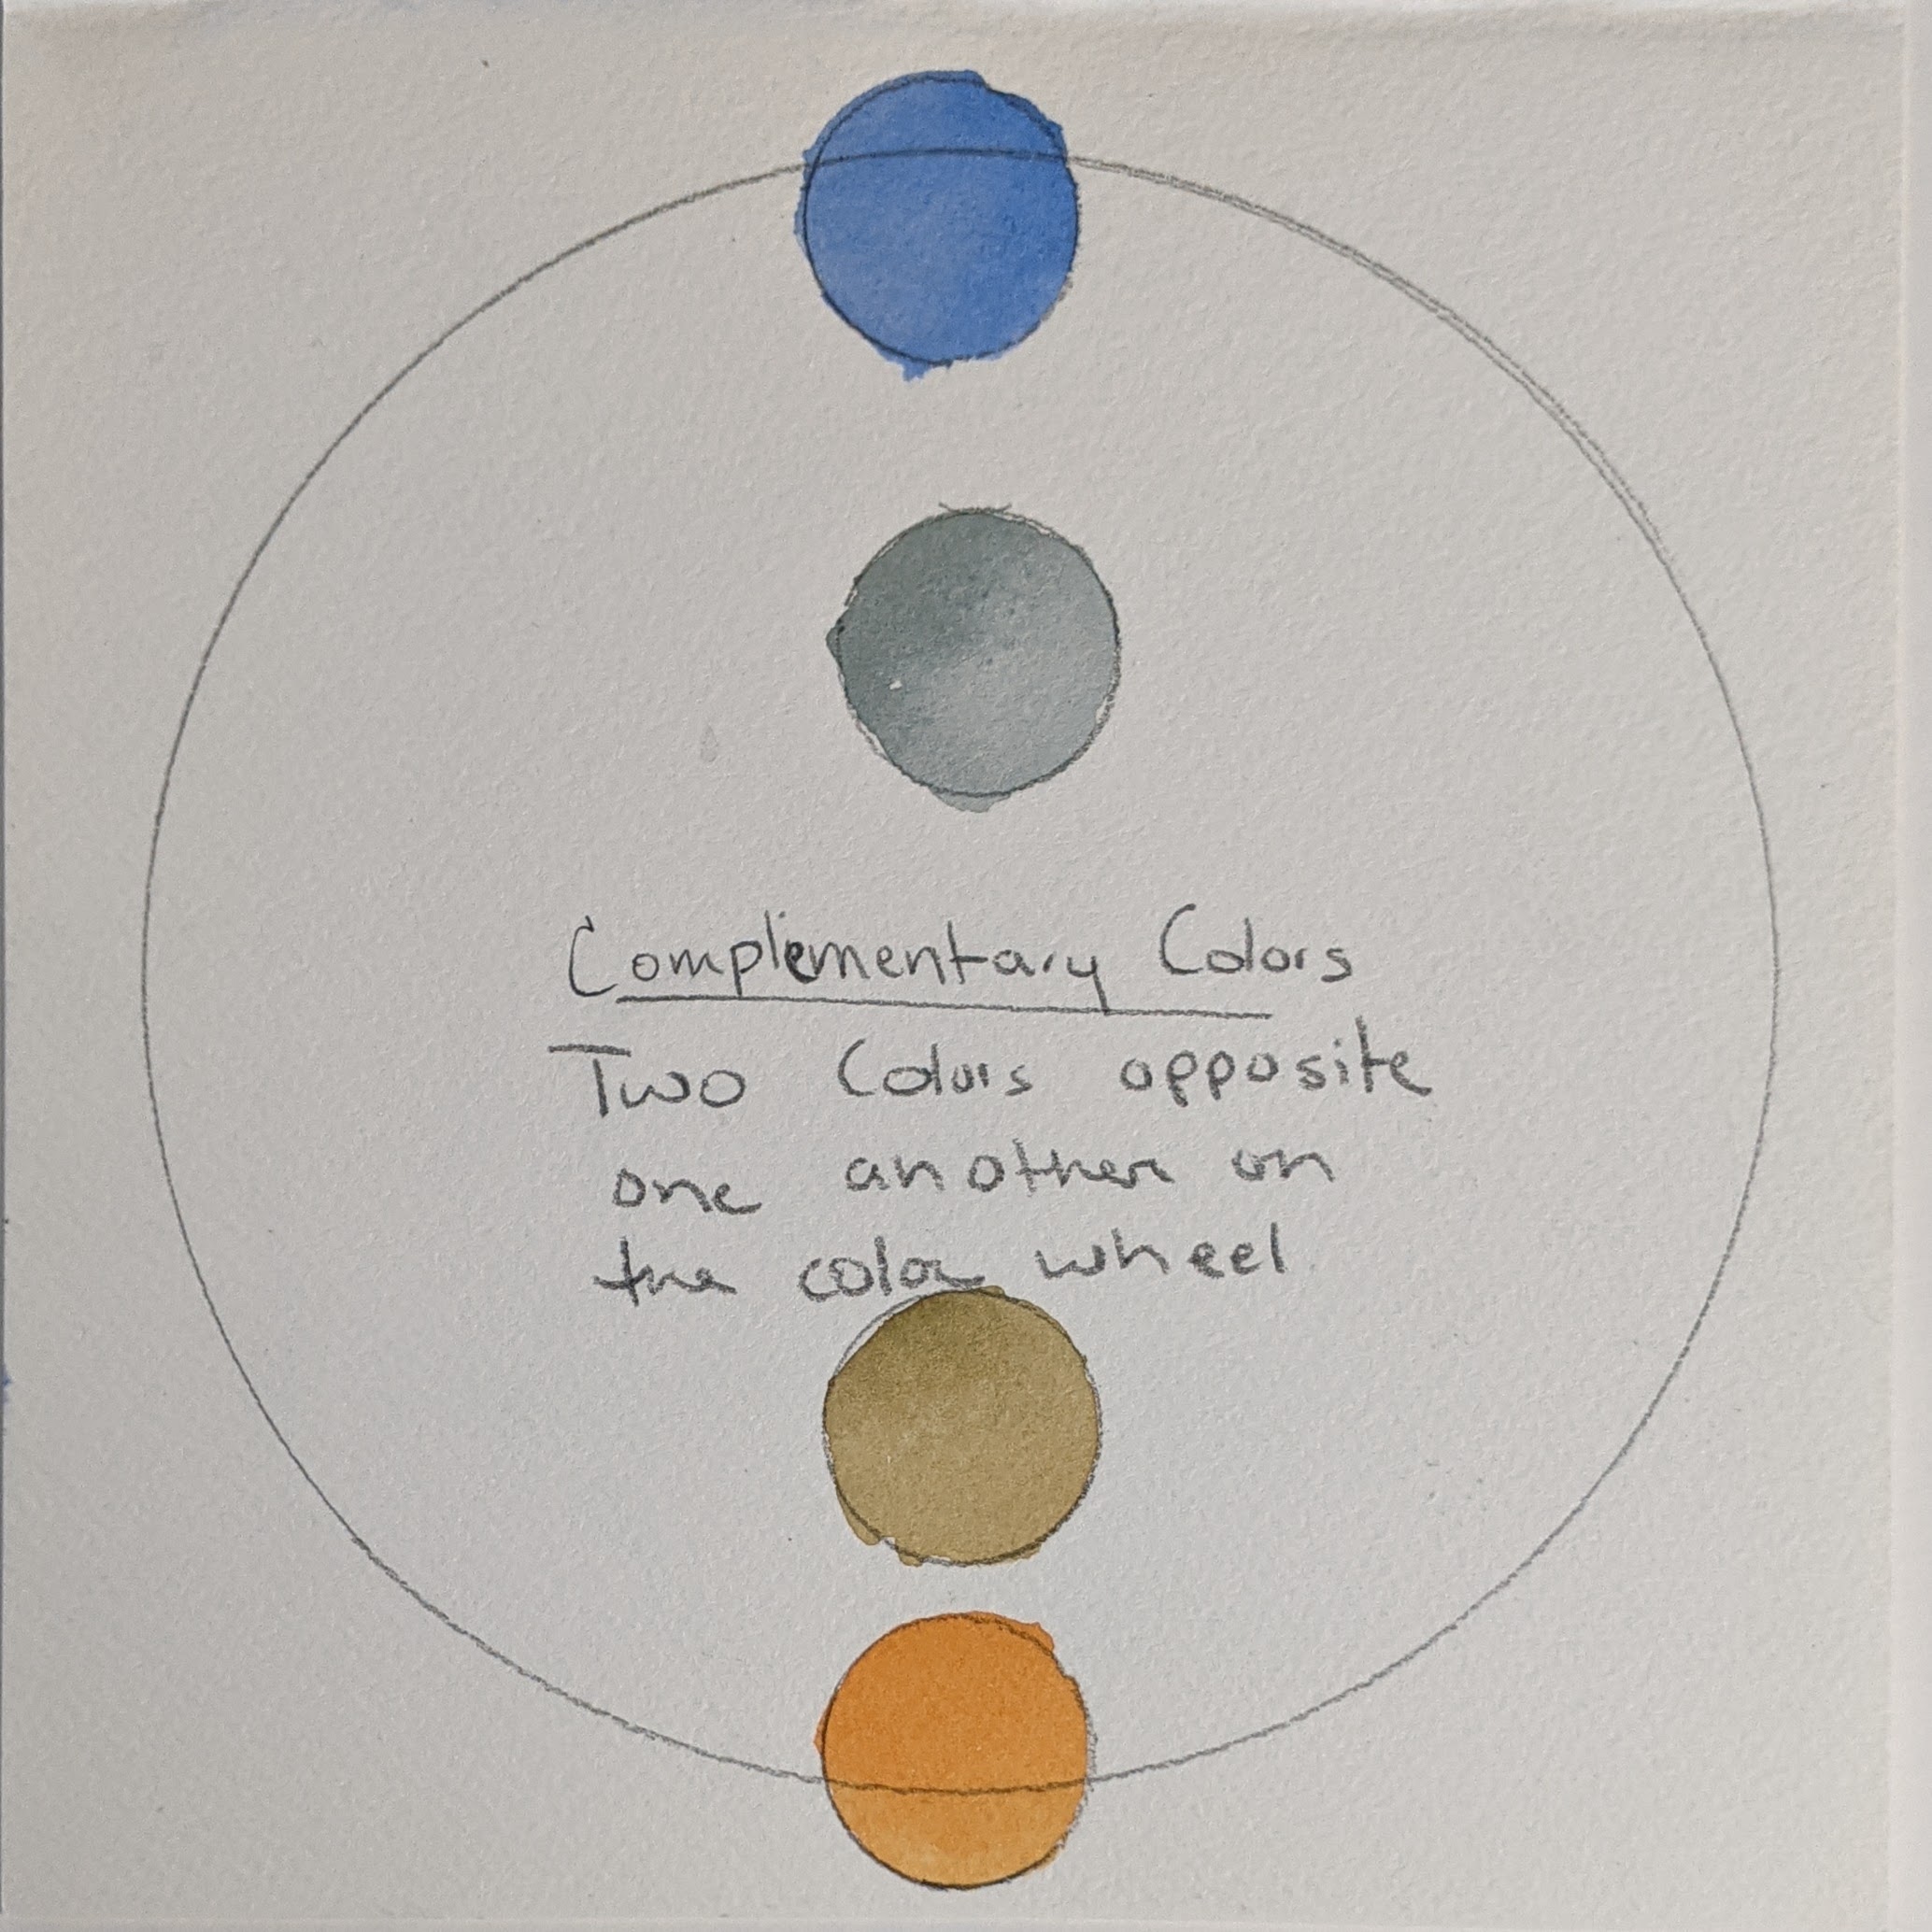 Complementary Colors
Two Colors opposite
one another on
the color wheel